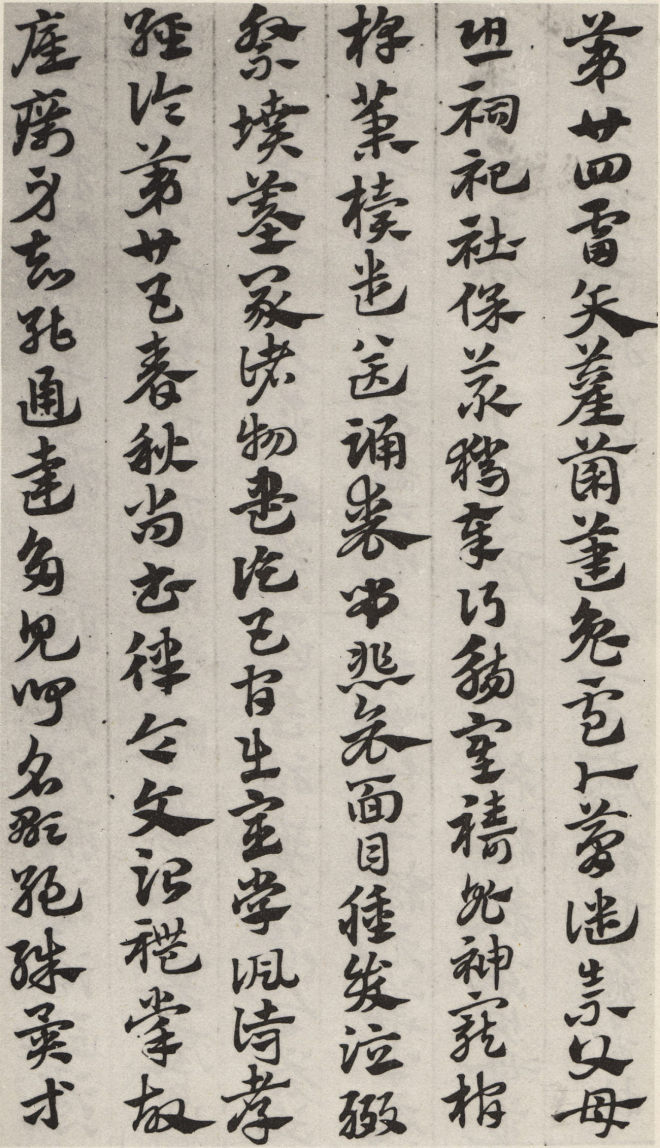 第廿四雷矢雚菌藎兔盧卜夢譴祟父母
恐祠祀社保叢獵奉行觴塞禱鬼神寵棺
槨槥櫝遣送踊喪弔悲哀面目腫哭泣醊
祭墳墓冢諸物盡訖五官出宦學諷詩孝
經論第廿五春秋尚書律令文治禮掌故
底厲身知能通達多見聞名顯絕殊異等